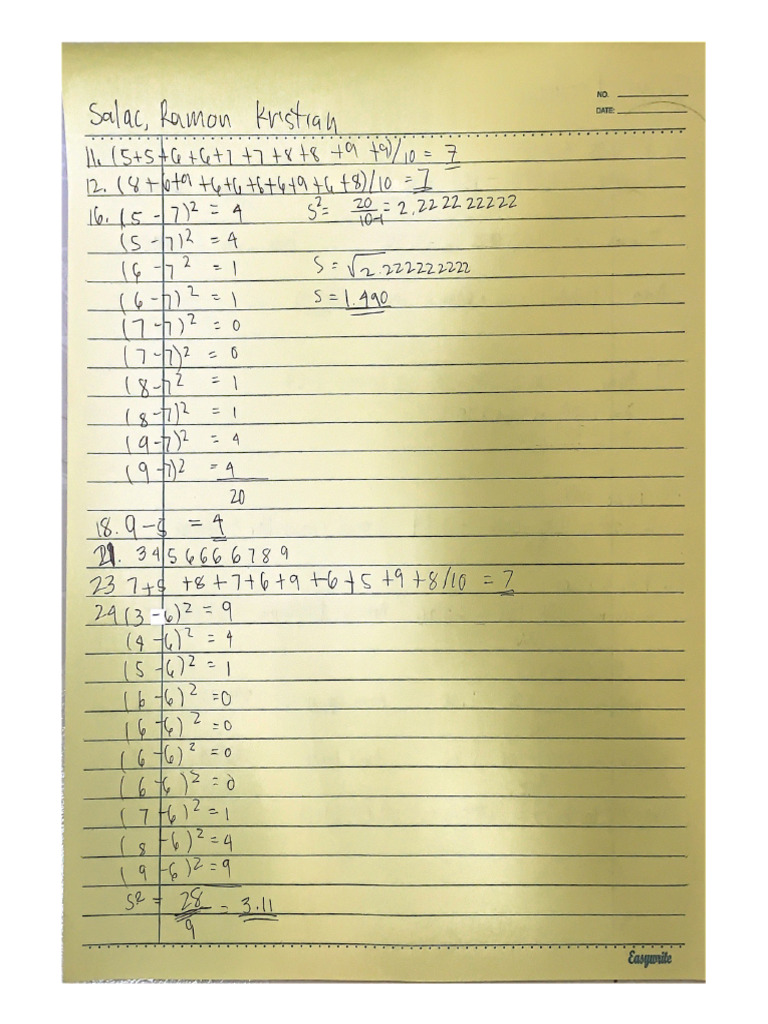 NO.
DATE:
Salac, Ramon Kristian
11. (5+5+6+6+7+7+8+8+9+9)/10 = 7
12. (8+6+9+6+6+6+6+9+6+8)/10 = 7
16. (5-7)² = 4 S² = 20/10-1 = 2.222222222
(5-7)² = 4
(6-7² = 1 S = √2.222222222
(6-7)² = 1 S = 1.490
(7-7)² = 0
(7-7)² = 0
(8-7² = 1
(8-7)² = 1
(9-7)² = 4
(9-7)² = 4
20
18. 9-5 = 4
21. 3456666789
23 7+5+8+7+6+9+6+5+9+8/10 = 7
24 (3-6)² = 9
(4-6)² = 4
(5-6)² = 1
(6-6)² = 0
(6-6)² = 0
(6-6)² = 0
(6-6)² = 0
(7-6)² = 1
(8-6)² = 4
(9-6)² = 9
S² = 28/9 = 3.11
Easywrite